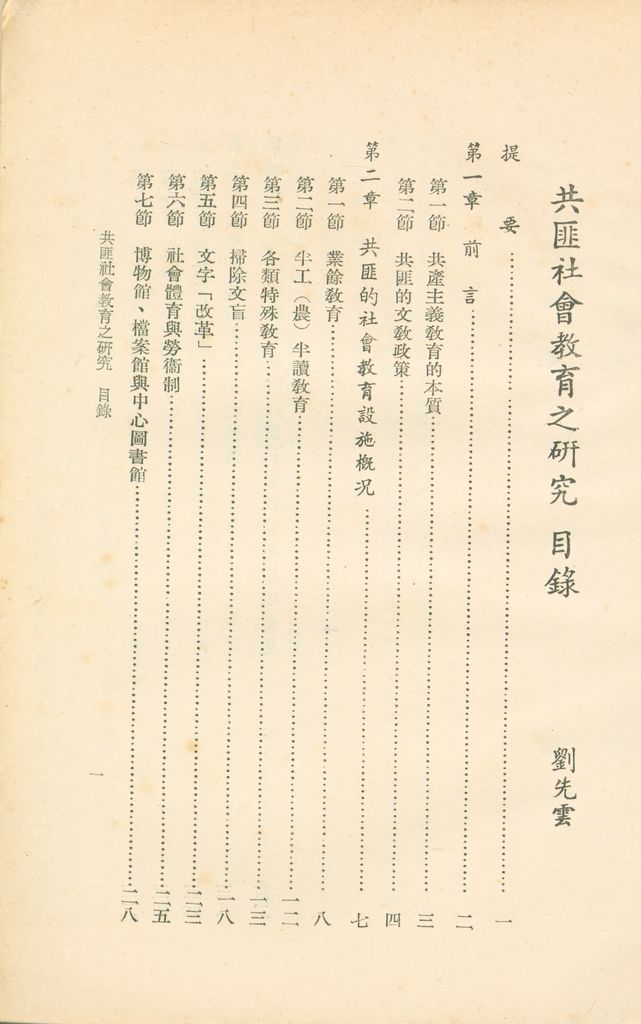 共匪社會教育之研究 目錄
劉先雲
提 要……一
第一章 前 言……二
第一節 共產主義教育的本質……三
第二節 共匪的文教政策……四
第二章 共匪的社會教育設施概況……七
第一節 業餘教育……八
第二節 半工(農)半讀教育……一二
第三節 各類特殊教育……一三
第四節 掃除文盲……一八
第五節 文字「改革」……二三
第六節 社會體育與勞衞制……二五
第七節 博物館、檔案館與中心圖書館……二八
共匪社會教育之研究 目錄
一